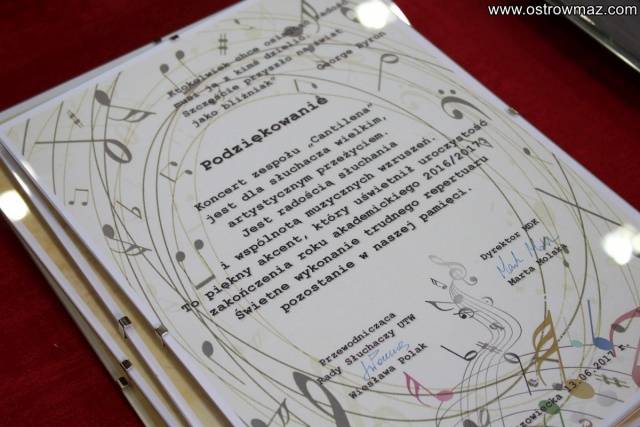 www.ostrowmaz.com
Ktokolwiek chce osi
musi ją z kimś dzielić.
Szczęście przyszło na świat
jako bliźniak"
George Byron
Podziękowanie
Koncert zespołu „Cantilena"
jest dla słuchacza wielkim,
artystycznym przeżyciem.
Jest radością słuchania
i wspólnotą muzycznych wzruszeń.
To piękny akcent, który uświetnił uroczystość
zakończenia roku akademickiego 2016/2017.
Świetne wykonanie trudnego repertuaru
pozostanie w naszej pamięci.
Dyrektor MDK
Marta Molska
Przewodnicząca
Rady Słuchaczy UTW
Wiesława Polak
13.06.2017 r.